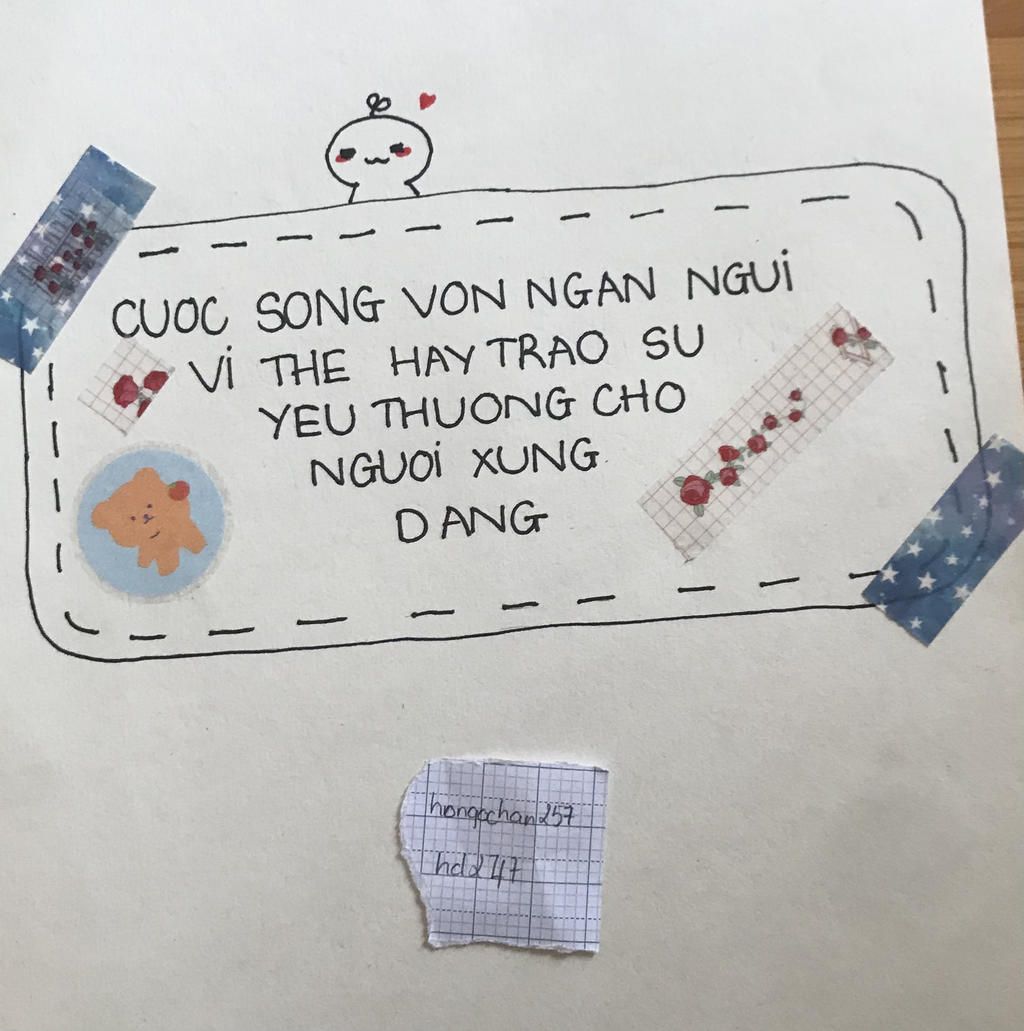 CUOC SONG VON NGAN NGUI
VI THE HAY TRAO SU
YEU THUONG CHO
NGUOI XUNG
DANG
hongochan257
hd2747